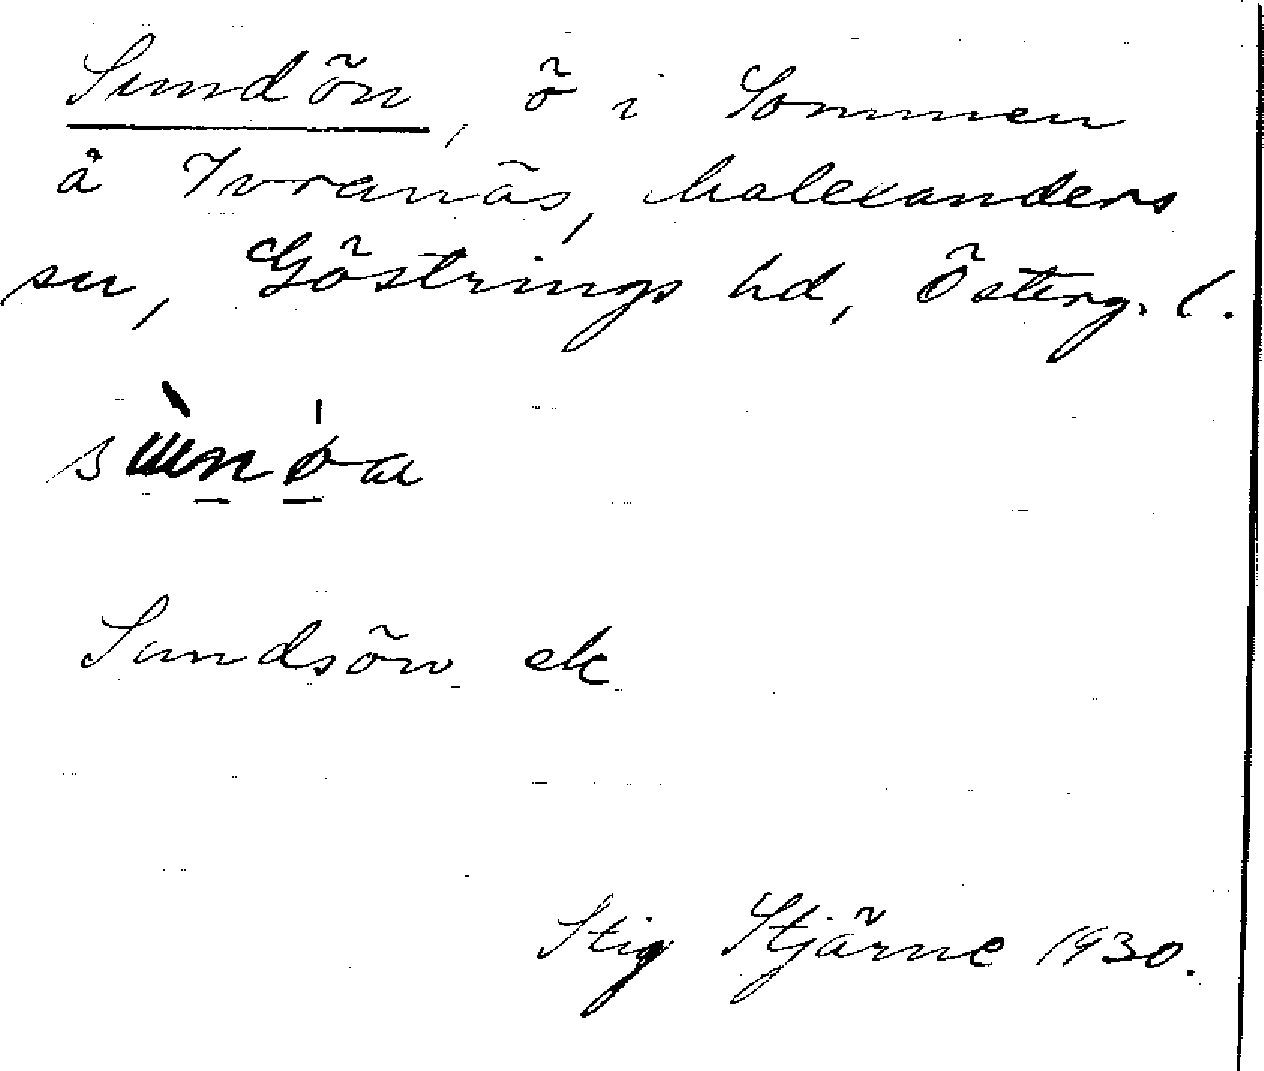 Sundön, ö i Sommen
å Tvranäs, Malexanders
sn, Göstrings hd, Österg. l.
Sundsön ek
Stig Stjärne 1930.